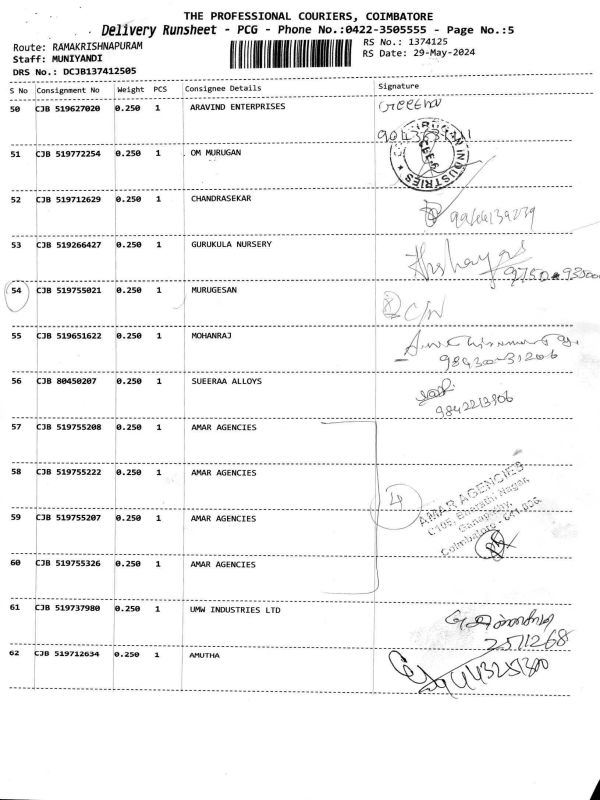 THE PROFESSIONAL COURIERS, COIMBATORE
Delivery Runsheet - PCG - Phone No.:0422-3505555 - Page No.:5
Route: RAMAKRISHNAPURAM
RS No.: 1374125
Staff: MUNIYANDI
RS Date: 29-May-2024
DRS No.: DCJB137412505
S No Consignment No Weight PCS Consignee Details Signature
50 CJB 519627020 0.250 1 ARAVIND ENTERPRISES
51 CJB 519772254 0.250 1 OM MURUGAN
INDUSTRIES
52 CJB 519712629 0.250 1 CHANDRASEKAR
53 CJB 519266427 0.250 1 GURUKULA NURSERY
54 CJB 519755021 0.250 1 MURUGESAN C/N
55 CJB 519651622 0.250 1 MOHANRAJ
98430-31206
56 CJB 80450207 0.250 1 SUEERAA ALLOYS
9842213906
57 CJB 519755208 0.250 1 AMAR AGENCIES
58 CJB 519755222 0.250 1 AMAR AGENCIES
4
AMAR AGENCIES
Bharathi Nagar,
Ganapathy,
Coimbatore - 641 006
59 CJB 519755207 0.250 1 AMAR AGENCIES
60 CJB 519755326 0.250 1 AMAR AGENCIES
61 CJB 519737980 0.250 1 UMW INDUSTRIES LTD
2571268
62 CJB 519712634 0.250 1 AMUTHA